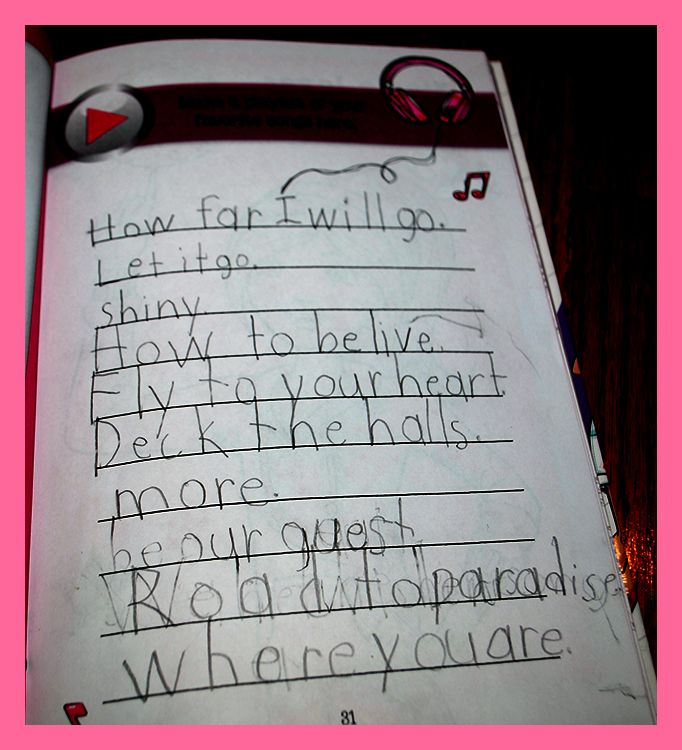 Make a playlist of your
favorite songs here.
How far I will go.
Let it go.
shiny.
How to belive.
Fly to your heart
Deck the halls.
more.
be our guest
Road to paradise
Where you are.
31